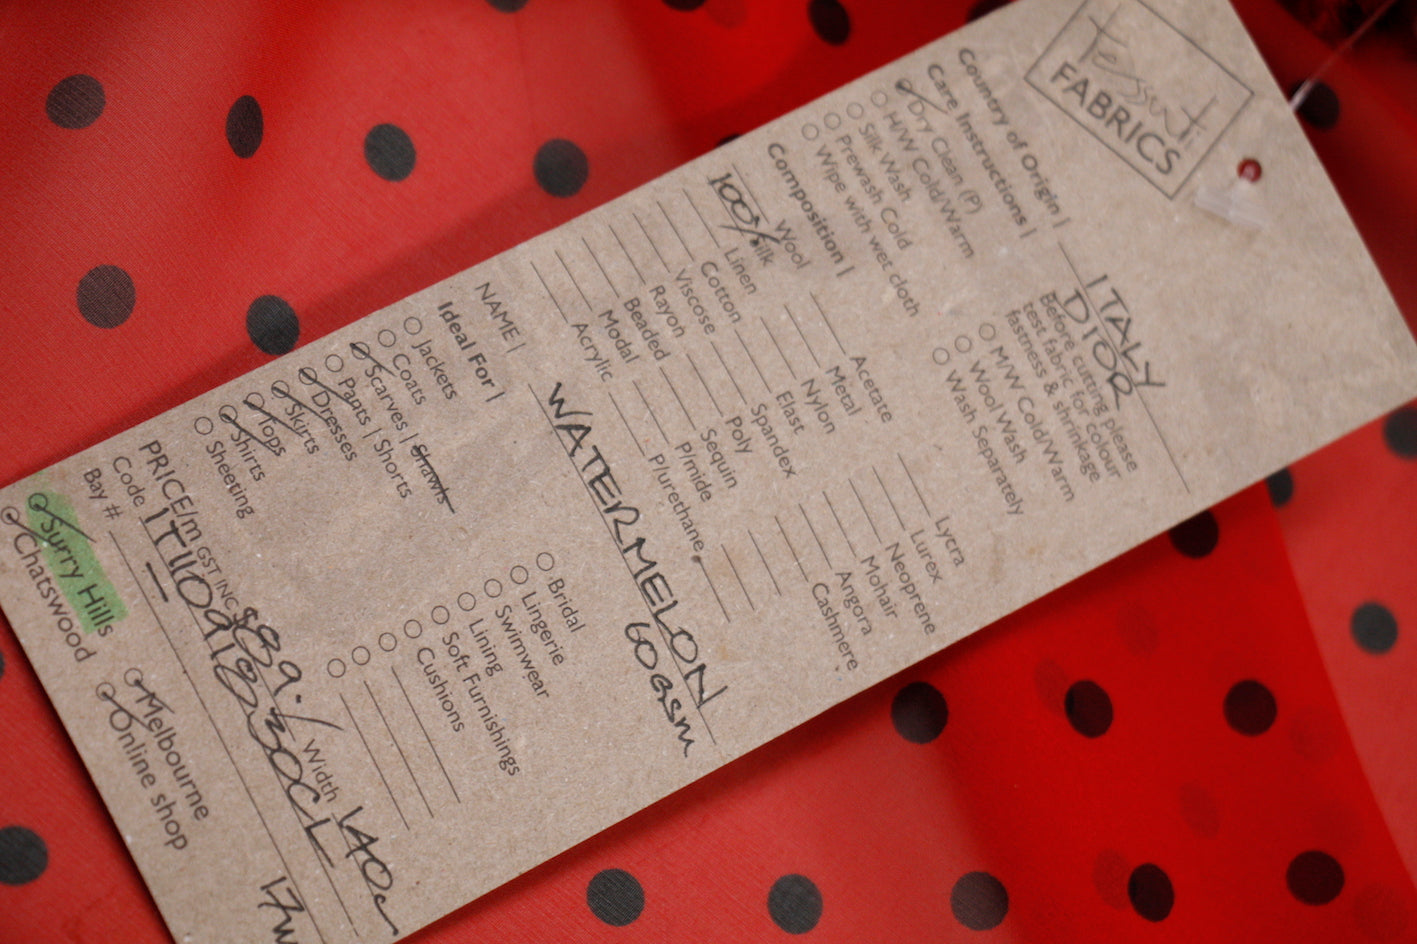 tessuti
FABRICS
Country of Origin | ITALY
DIOR
Care Instructions |
Before cutting please
test fabric for colour
fastness & shrinkage
Dry Clean (P)
H/W Cold/Warm
M/W Cold/Warm
Silk Wash
Wool Wash
Prewash Cold
Wash Separately
Wipe with wet cloth
Composition |
Wool
Acetate
Lycra
100% Silk
Metal
Lurex
Linen
Nylon
Neoprene
Cotton
Elast
Mohair
Viscose
Spandex
Angora
Rayon
Poly
Cashmere
Beaded
Sequin
Modal
P/mide
Acrylic
P/urethane
NAME | WATERMELON
60GSM
Ideal For |
Jackets
Bridal
Coats
Lingerie
Scarves | Shawls
Swimwear
Pants | Shorts
Lining
Dresses
Soft Furnishings
Skirts
Cushions
Tops
Shirts
Sheeting
PRICE/m GST INC $89.- Width 140c
Code
Bay #
Surry Hills
Melbourne
Chatswood
Online shop